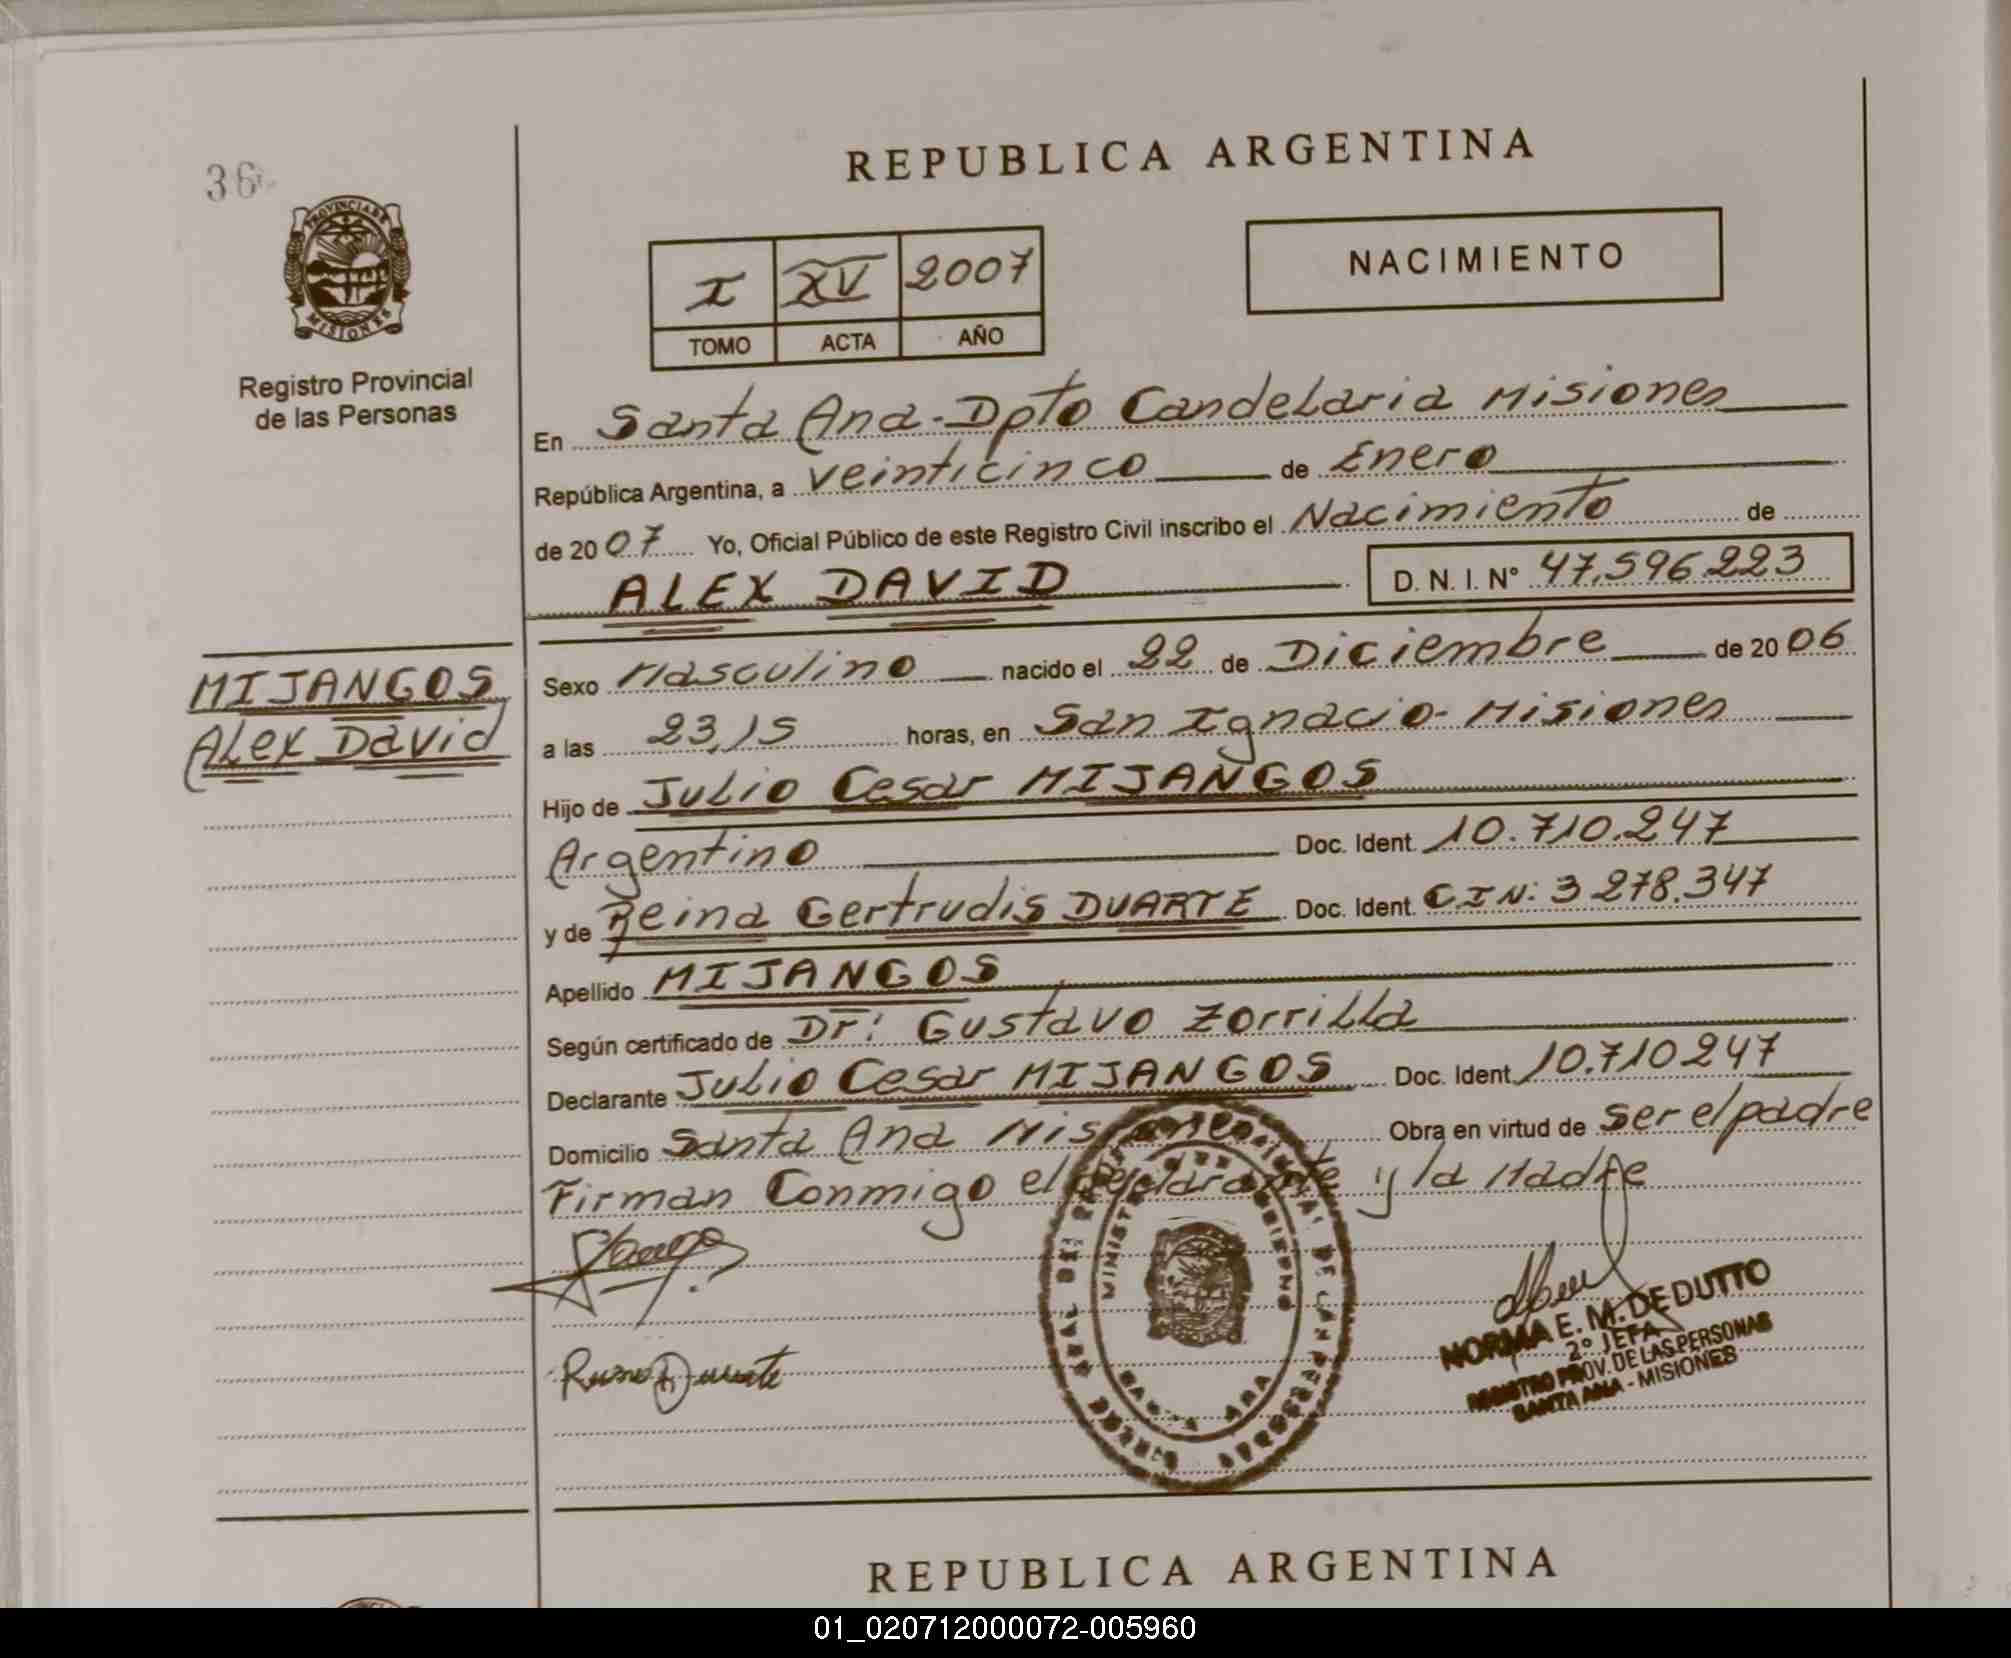 36
PROVINCIA DE
MISIONES
Registro Provincial
de las Personas
REPUBLICA ARGENTINA
I XV 2007
TOMO ACTA AÑO
NACIMIENTO
En Santa Ana - Dpto Candelaria Misiones
República Argentina, a veinticinco de Enero
de 2007 Yo, Oficial Público de este Registro Civil inscribo el Nacimiento de
ALEX DAVID D. N. I. Nº 47.596.223
MIJANGOS
Alex David
Sexo Masculino nacido el 22 de Diciembre de 2006
a las 23,15 horas, en San Ignacio - Misiones
Hijo de Julio Cesar MIJANGOS
Argentino Doc. Ident. 10.710.247
y de Reina Gertrudis DUARTE Doc. Ident. C.I.N: 3 278.347
Apellido MIJANGOS
Según certificado de Dr: Gustavo Zorrilla
Declarante Julio Cesar MIJANGOS Doc. Ident. 10.710247
Domicilio Santa Ana Misiones Obra en virtud de ser el padre
Firman Conmigo el declarante y la Madre
NORMA E. M. DE DUTTO
2º JEFA
REGISTRO PROV. DE LAS PERSONAS
SANTA ANA - MISIONES
SANTA ANA
REPUBLICA ARGENTINA
01_020712000072-005960